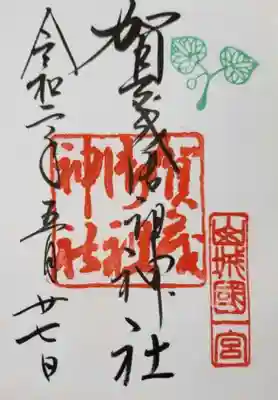 賀茂御祖神社
令和二年五月廿七日
賀茂
御祖
神社
山城國一宮